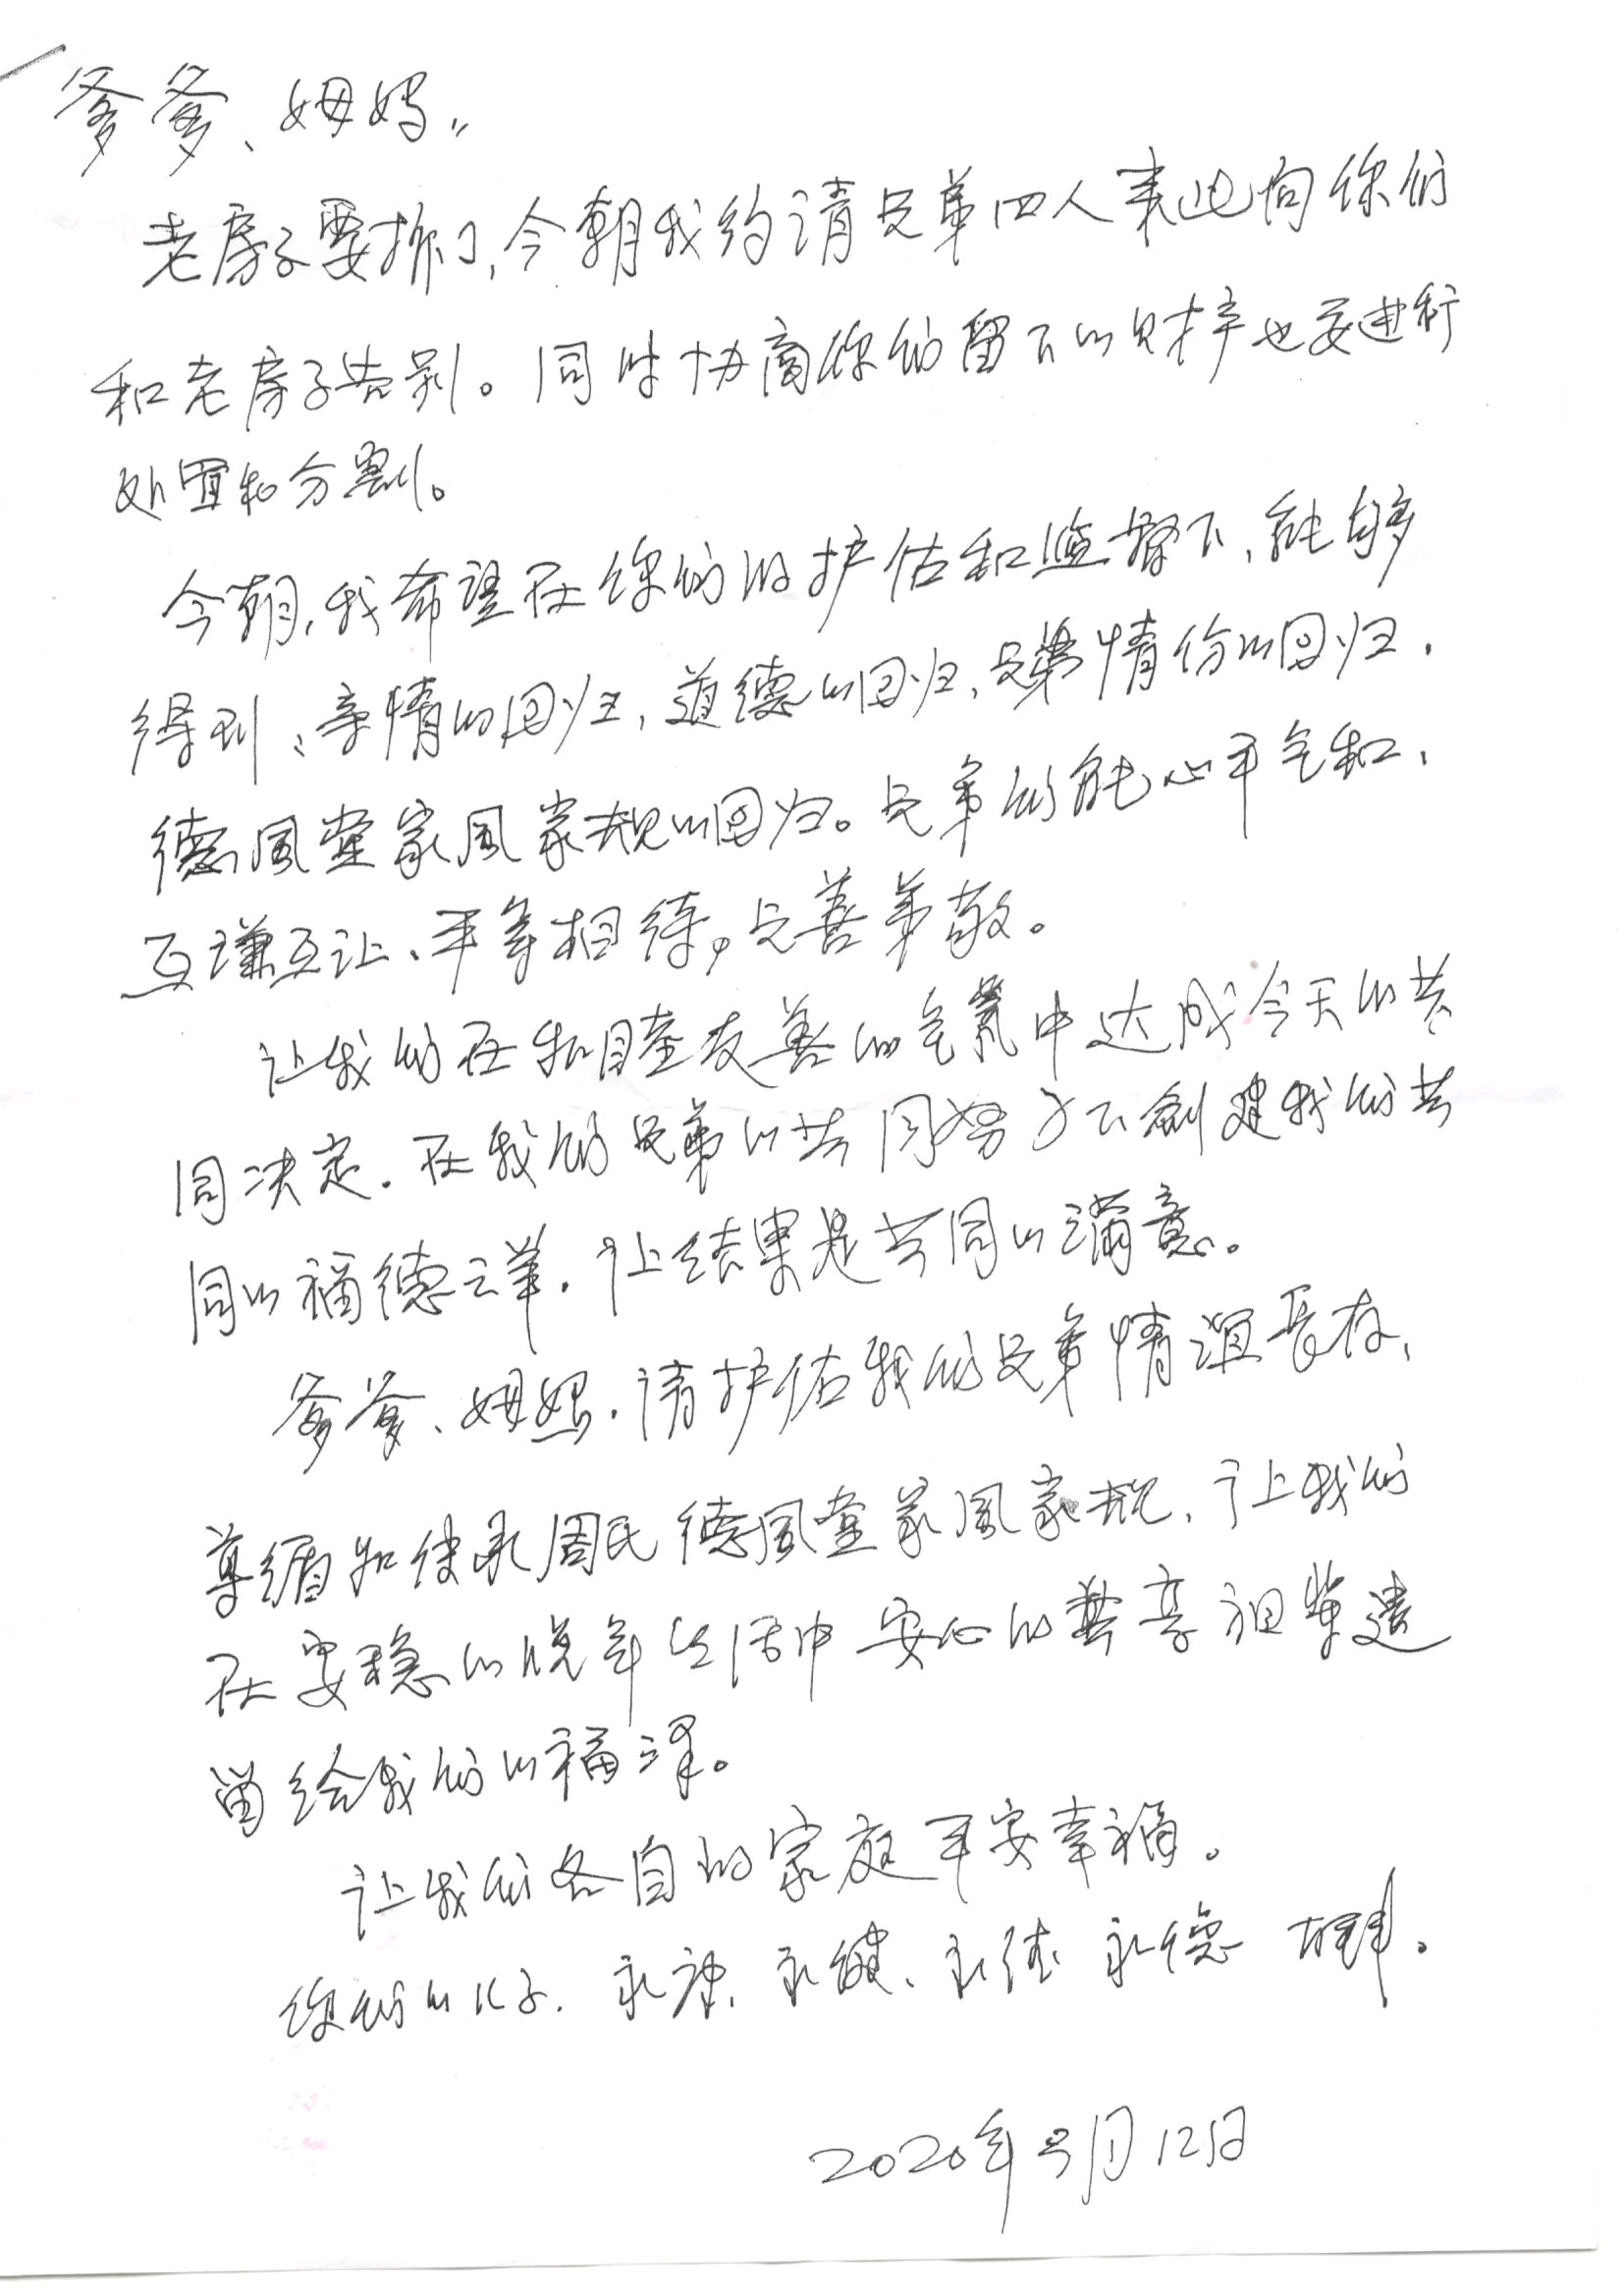 爹爹、姆妈：
老房子要拆了，今朝我约请兄弟四人来此向你们
和老房子告别。同时协商你们留下的财产也要进行
处置和分割。
今朝，我希望在你们的护佑和监督下，能够
得到：亲情的回归，道德的回归，兄弟情份的回归，
德风堂家风家规的回归。兄弟们能心平气和，
互谦互让、平等相待，兄善弟敬。
让我们在和睦友善的气氛中达成今天的共
同决定。在我们兄弟的共同努力下创建我们共
同的福德云羊，让结果是共同的满意。
爹爹、姆妈，请护佑我们兄弟情谊长存，
尊循和传承周氏德风堂家风家规，让我们
在安稳的晚年生活中安心的共享祖辈遗
留给我们的福泽。
让我们各自的家庭平安幸福。
你们的儿子：永康、永健、永佳 永德
2020年9月12日